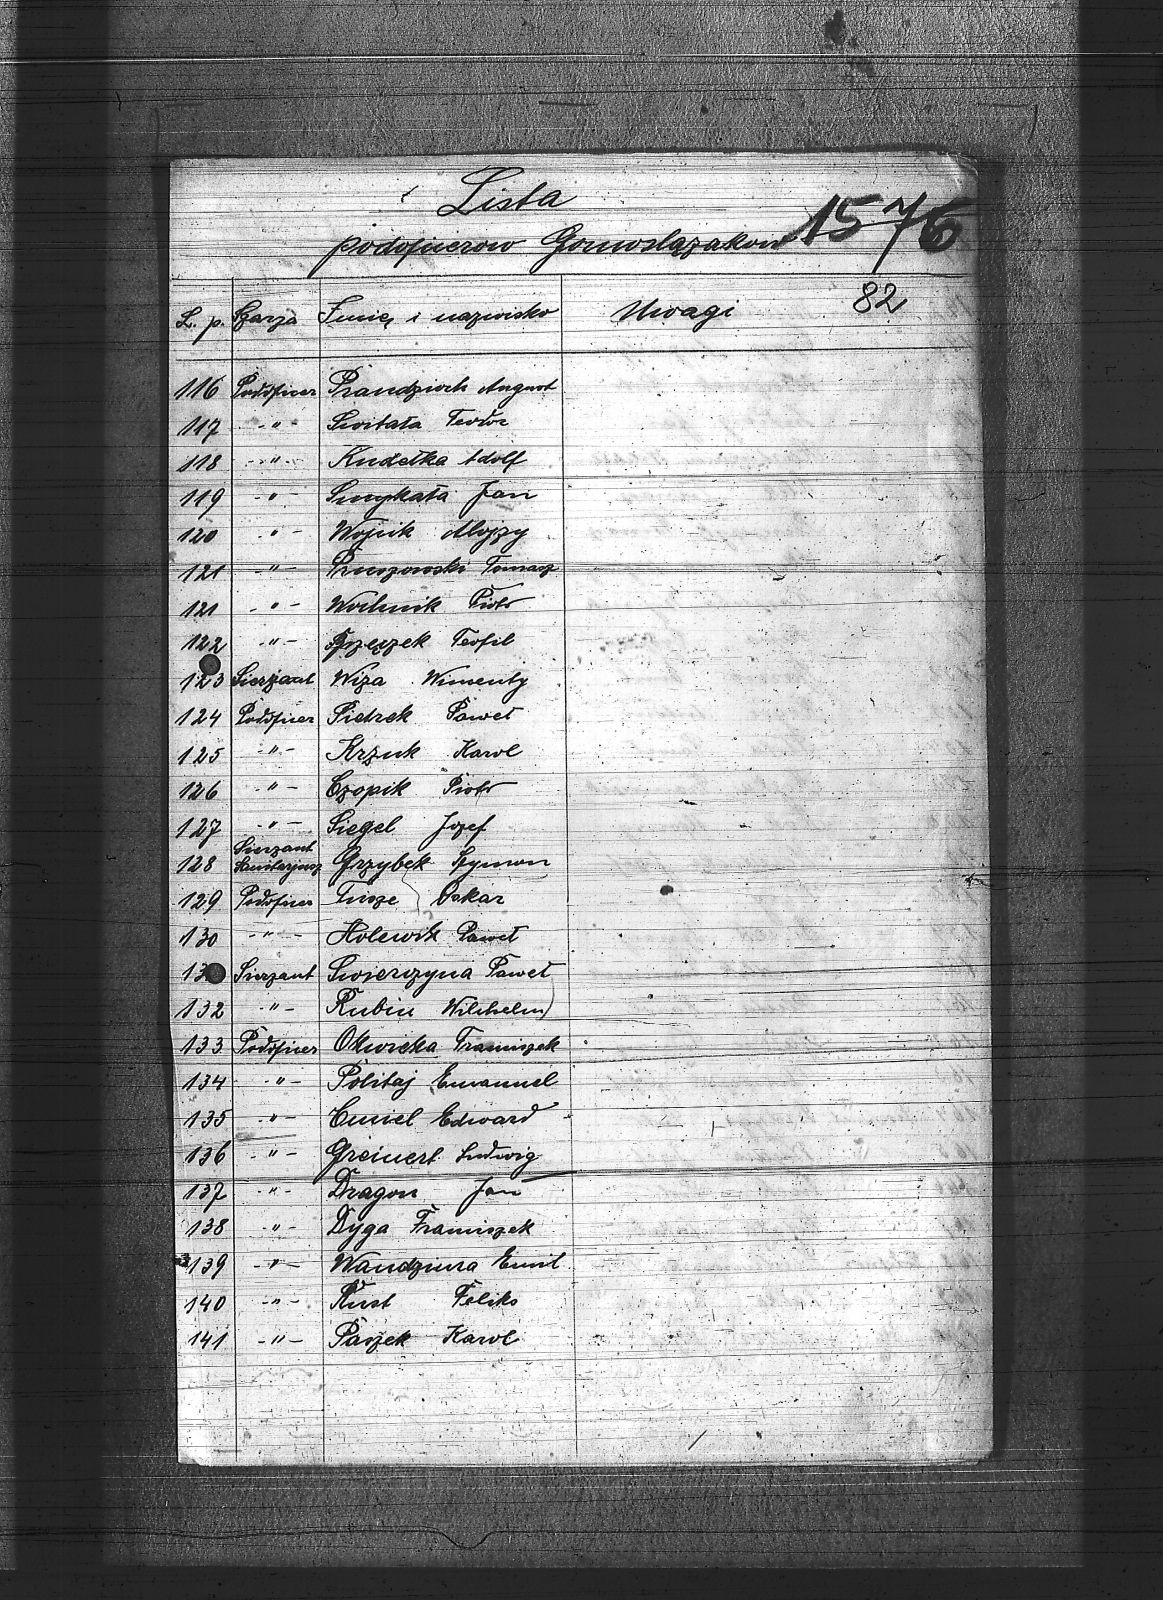 Lista
podoficerow Gornoslązakow 1576
82
L. p. Szarża Imię i nazwisko Uwagi
116 Podoficer August
117 -"- Switała Teodor
118 -"- Kudełka Adolf
119 -"- Smykała Jan
120 -"- Wojcik Alojzy
121 -"- Tomasz
121 -"- Wochnik Piotr
122 -"- Teofil
123 Sierżant Wiza Wincenty
124 Podoficer Pietrek Paweł
125 -"- Krzuk Karol
126 -"- Czopik Piotr
127 -"- Siegel Jozef
128 Sierżant Sanitarjusz Grzybek Szymon
129 Podoficer Oskar
130 -"- Holewik Paweł
13 Sierżant Swierczyna Paweł
132 -"- Rubin Wilchelm
133 Podoficer Okwieka Franciszek
134 -"- Politaj Emanuel
135 -"- Cmiel Edward
136 -"- Greinert Ludwig
137 -"- Dragon Jan
138 -"- Dyga Franciszek
139 -"- Wandzura Emil
140 -"- Rust Feliks
141 -"- Paszek Karol